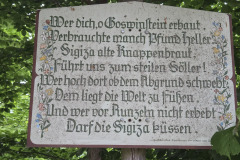 Wer dich, o Goswinstein erbaut,
Verbrauchte manch Pfund Heller.
Sigiza alte Knappenbraut,
Führt uns zum steilen Söller!
Wer hoch dort ob dem Abgrund schwebt,
Dem liegt die Welt zu Füßen.
Und wer vor Runzeln nicht erbebt
Darf die Sigiza küssen.